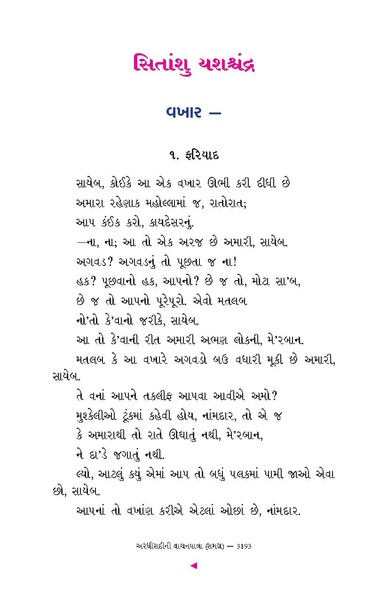 સિતાંશુ યશશ્ચંદ્ર
વખાર –
૧. ફરિયાદ
સાયેબ, કોઈકે આ એક વખાર ઊભી કરી દીધી છે
અમારા રહેણાક મહોલ્લામાં જ, રાતોરાત;
આપ કંઈક કરો, કાયદેસરનું.
—ના, ના; આ તો એક અરજ છે અમારી, સાયેબ.
અગવડ? અગવડનું તો પૂછતા જ ના!
હક? પૂછવાનો હક, આપનો? છે જ તો, મોટા સા'બ,
છે જ તો આપનો પૂરેપૂરો. એવો મતલબ
નો'તો કે'વાનો જરીકે, સાયેબ.
આ તો કે'વાની રીત અમારી અભણ લોકની, મે'રબાન.
મતલબ કે આ વખારે અગવડો બઉ વધારી મૂકી છે અમારી,
સાયેબ.
તે વનાં આપને તકલીફ આપવા આવીએ અમો?
મુશ્કેલીઓ ટૂંકમાં કહેવી હોય, નાંમદાર, તો એ જ
કે અમારાથી તો રાતે ઊંઘાતું નથી, મે'રબાન,
ને દા'ડે જગાતું નથી.
લ્યો, આટલું કયું એમાં આપ તો બધું પલકમાં પામી જાઓ એવા
છો, સાયેબ.
આપનાં તો વખાંણ કરીએ એટલાં ઓછાં છે, નાંમદાર.
અરધીસદીની વાચનયાત્રા (સમગ્ર) — 3193